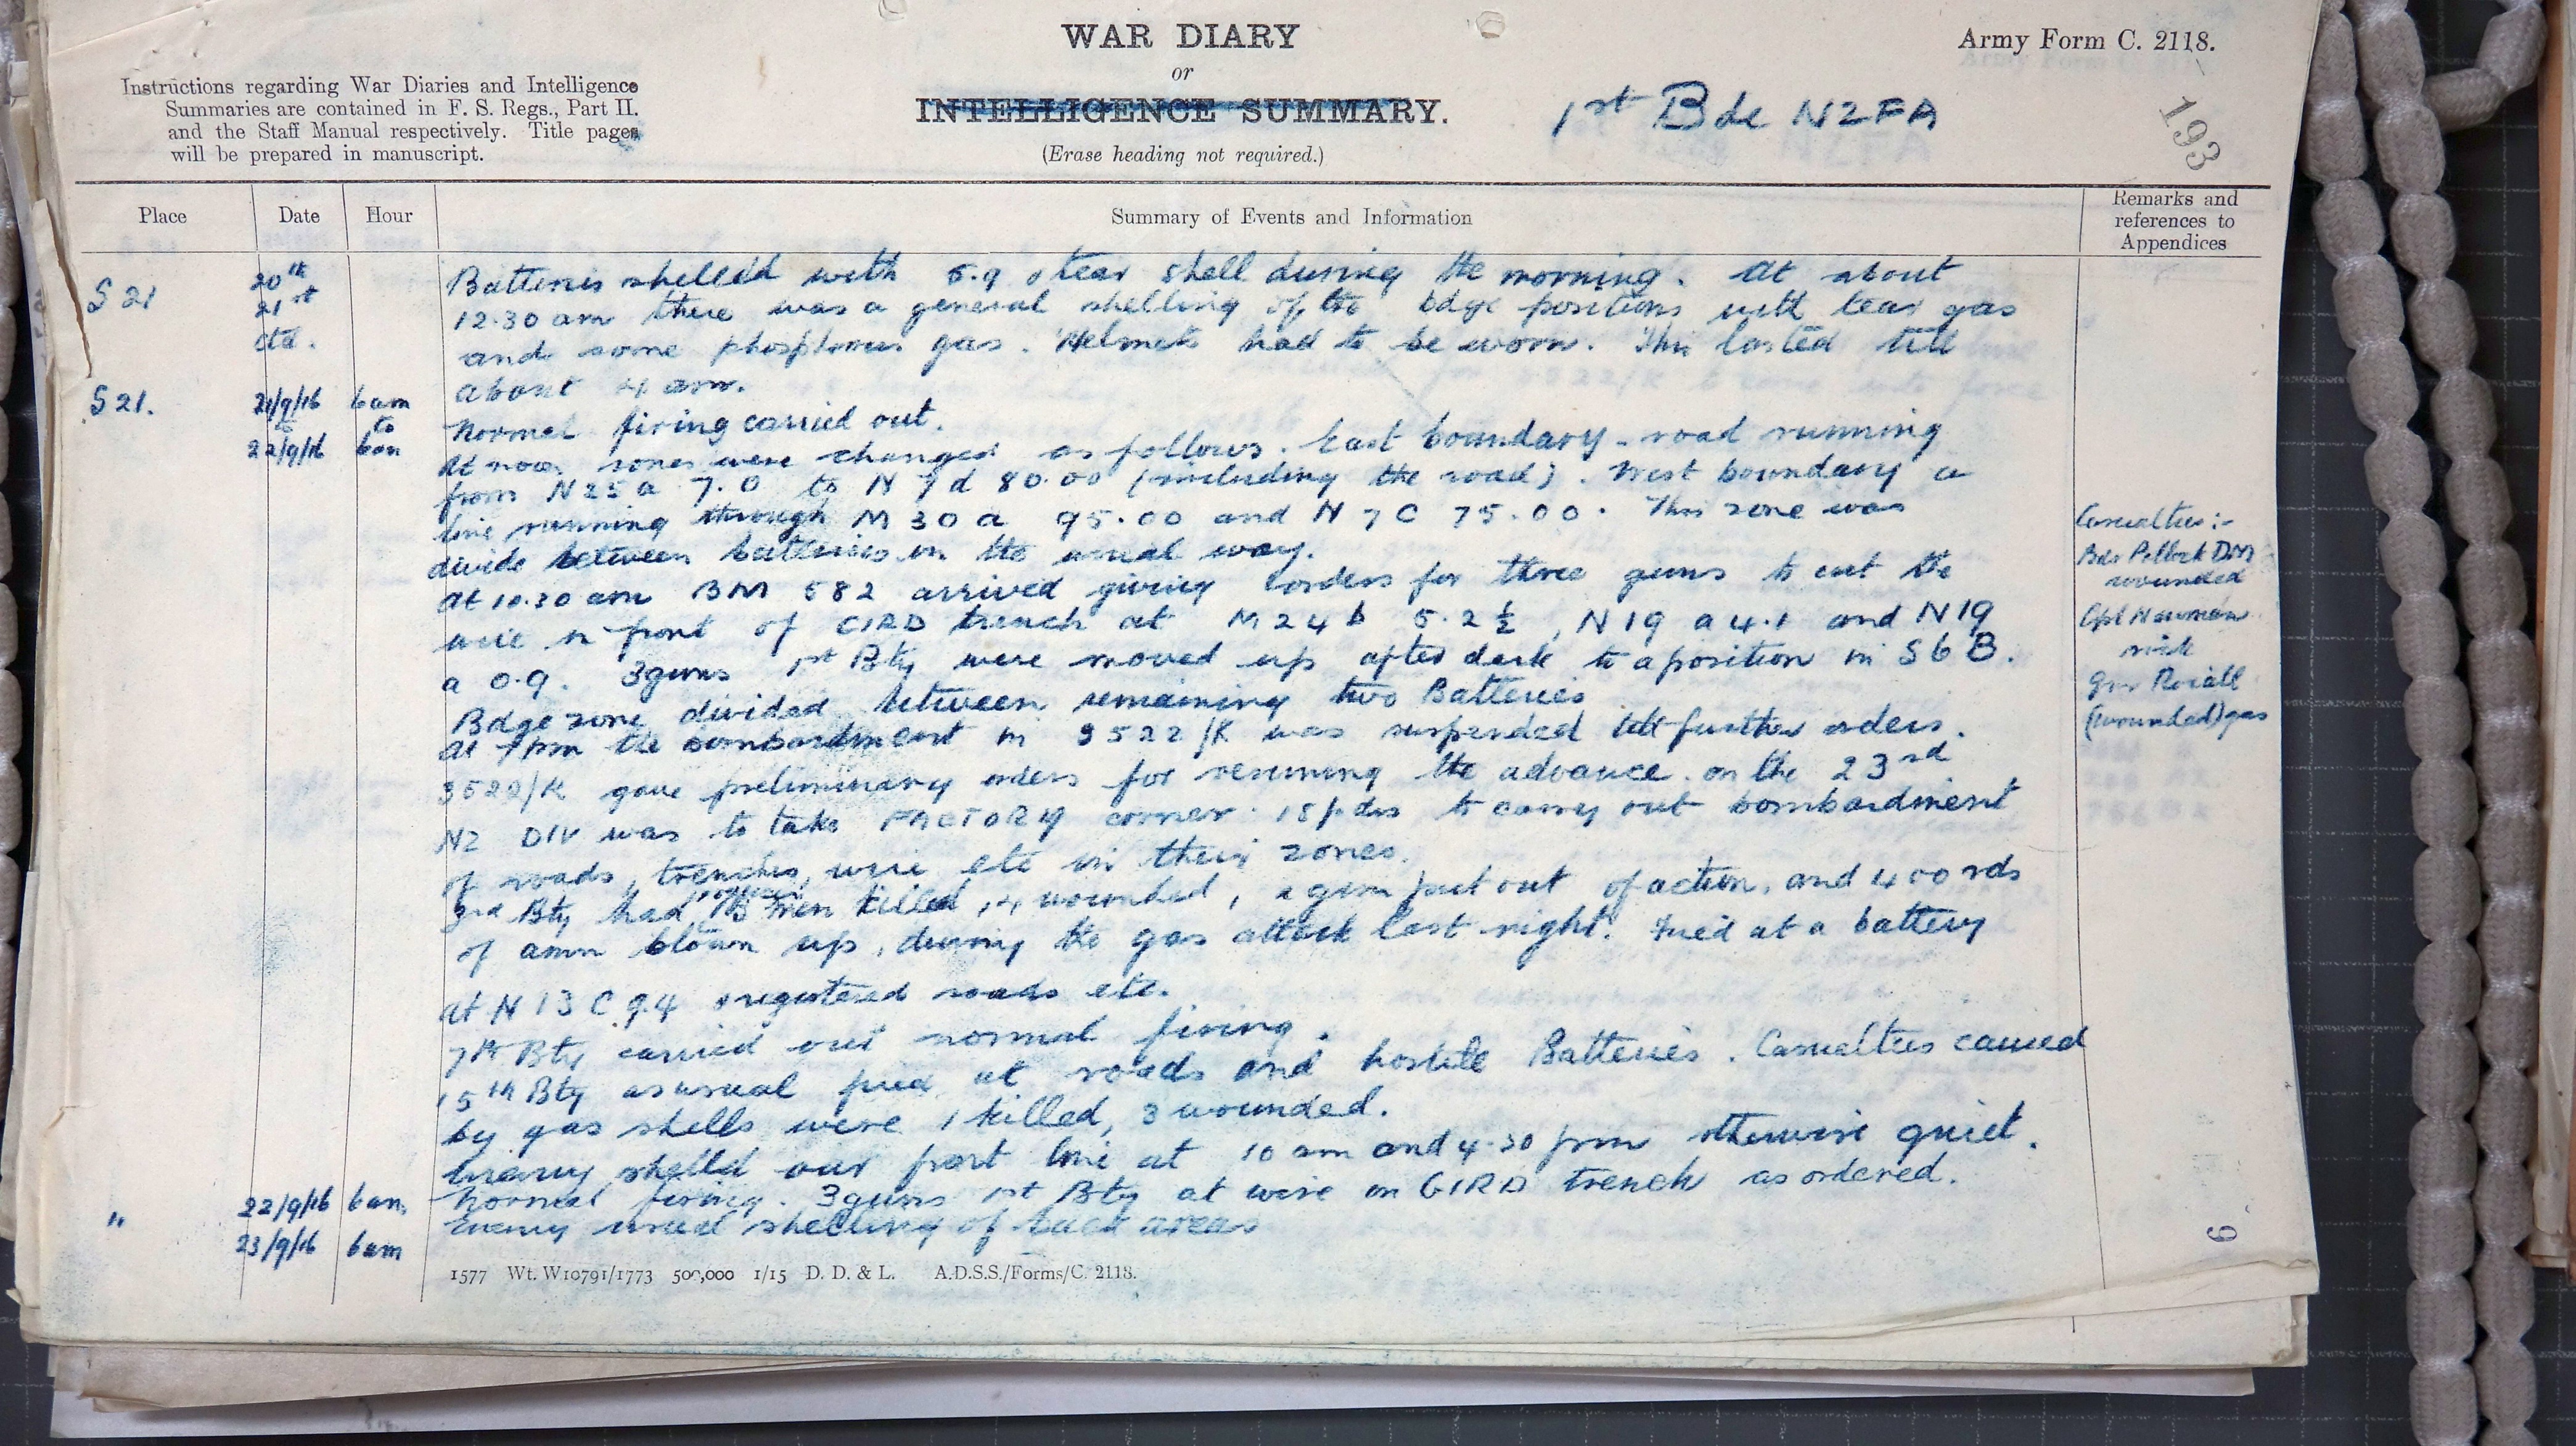 WAR DIARY
or
INTELLIGENCE SUMMARY.
(Erase heading not required.)
Army Form C. 2118.
Instructions regarding War Diaries and Intelligence
Summaries are contained in F. S. Regs., Part II.
and the Staff Manual respectively. Title pages
will be prepared in manuscript.
1st Bde NZFA
193
Place Date Hour Summary of Events and Information Remarks and references to Appendices
S 21 20th 21st ctd. Batteries shelled with 5.9 & tear shell during the morning. At about
12.30 am there was a general shelling of the bdge positions with tear gas
and some phosphorus gas. Helmets had to be worn. This lasted till
about 4 am.
S 21. 21/9/16 to 22/9/16 6am to 6am Normal firing carried out.
At noon zones were changed as follows. East boundary - road running
from N 25 a 7.0 to N 7 d 80.00 (including the road). West boundary a
line running through M 30 a 95.00 and N 7 C 75.00. This zone was
divide between batteries in the usual way.
At 10.30 am BM 582 arrived giving orders for three guns to cut the
wire in front of GIRD trench at M 24 b 5.2½, N 19 a 4.1 and N 19
a 0.9. 3 guns 1st Bty were moved up after dark to a position in S 6 B.
Bdge zone divided between remaining two Batteries
At 7pm the bombardment in 3522/K was suspended till further orders.
3522/K gave preliminary orders for resuming the advance on the 23rd
NZ DIV was to take FACTORY corner. 18 pdrs to carry out bombardment
of roads, trenches, wire etc in their zones.
3rd Bty had men killed, 4 wounded, a gun put out of action, and 400 rds
of amn blown up, during the gas attack last night. Fired at a battery
at N 13 C 9.4 & registered roads etc.
7th Bty carried out normal firing.
15th Bty as usual fired at roads and hostile Batteries. Casualties caused
by gas shells were 1 killed, 3 wounded.
Enemy shelled our front line at 10 am and 4.30 pm otherwise quiet.
" 22/9/16 6am Normal firing. 3 guns 1st Bty at wire in GIRD trench as ordered.
23/9/16 6am Enemy usual shelling of back areas
Casualties :-
Bdr Pollock DM
wounded
Cpl Newman
sick
Gnr
(wounded) gas
6
1577 Wt. W10791/1773 500,000 1/15 D. D. & L. A.D.S.S./Forms/C. 2118.